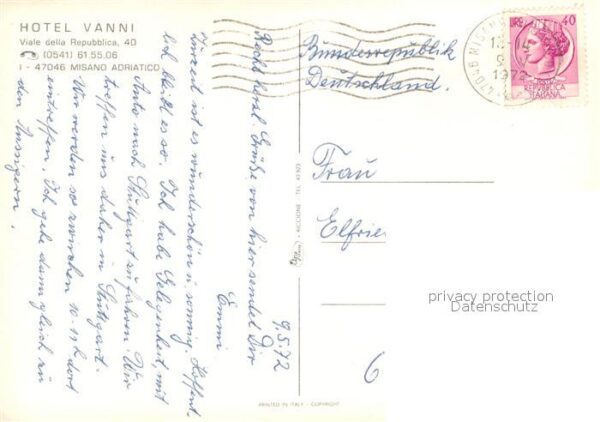 HOTEL VANNI
Viale della Repubblica, 40
(0541) 61.55.06
I - 47046 MISANO ADRIATICO
9.5.72
Recht herzl. Grüße von hier sendet Dir
Emmi.
Zurzeit ist es wunderschön u. sonnig. Hoffent-
lich bleibt es so. Ich habe Gelegenheit, mit
Auto nach Stuttgart zu fahren. Wir
treffen uns daher in Stuttgart.
Wir werden so zwischen 10-11 h dort
eintreffen. Ich gehe dann gleich zu
den Aussigern.
RICCIONE - TEL. 40 925
Bundesrepublik
Deutschland.
Frau
Elfrie
6
47046
9 V
1972
LIRE 40
REPUBBLICA
ITALIANA
privacy protection
Datenschutz
PRINTED IN ITALY - COPYRIGHT